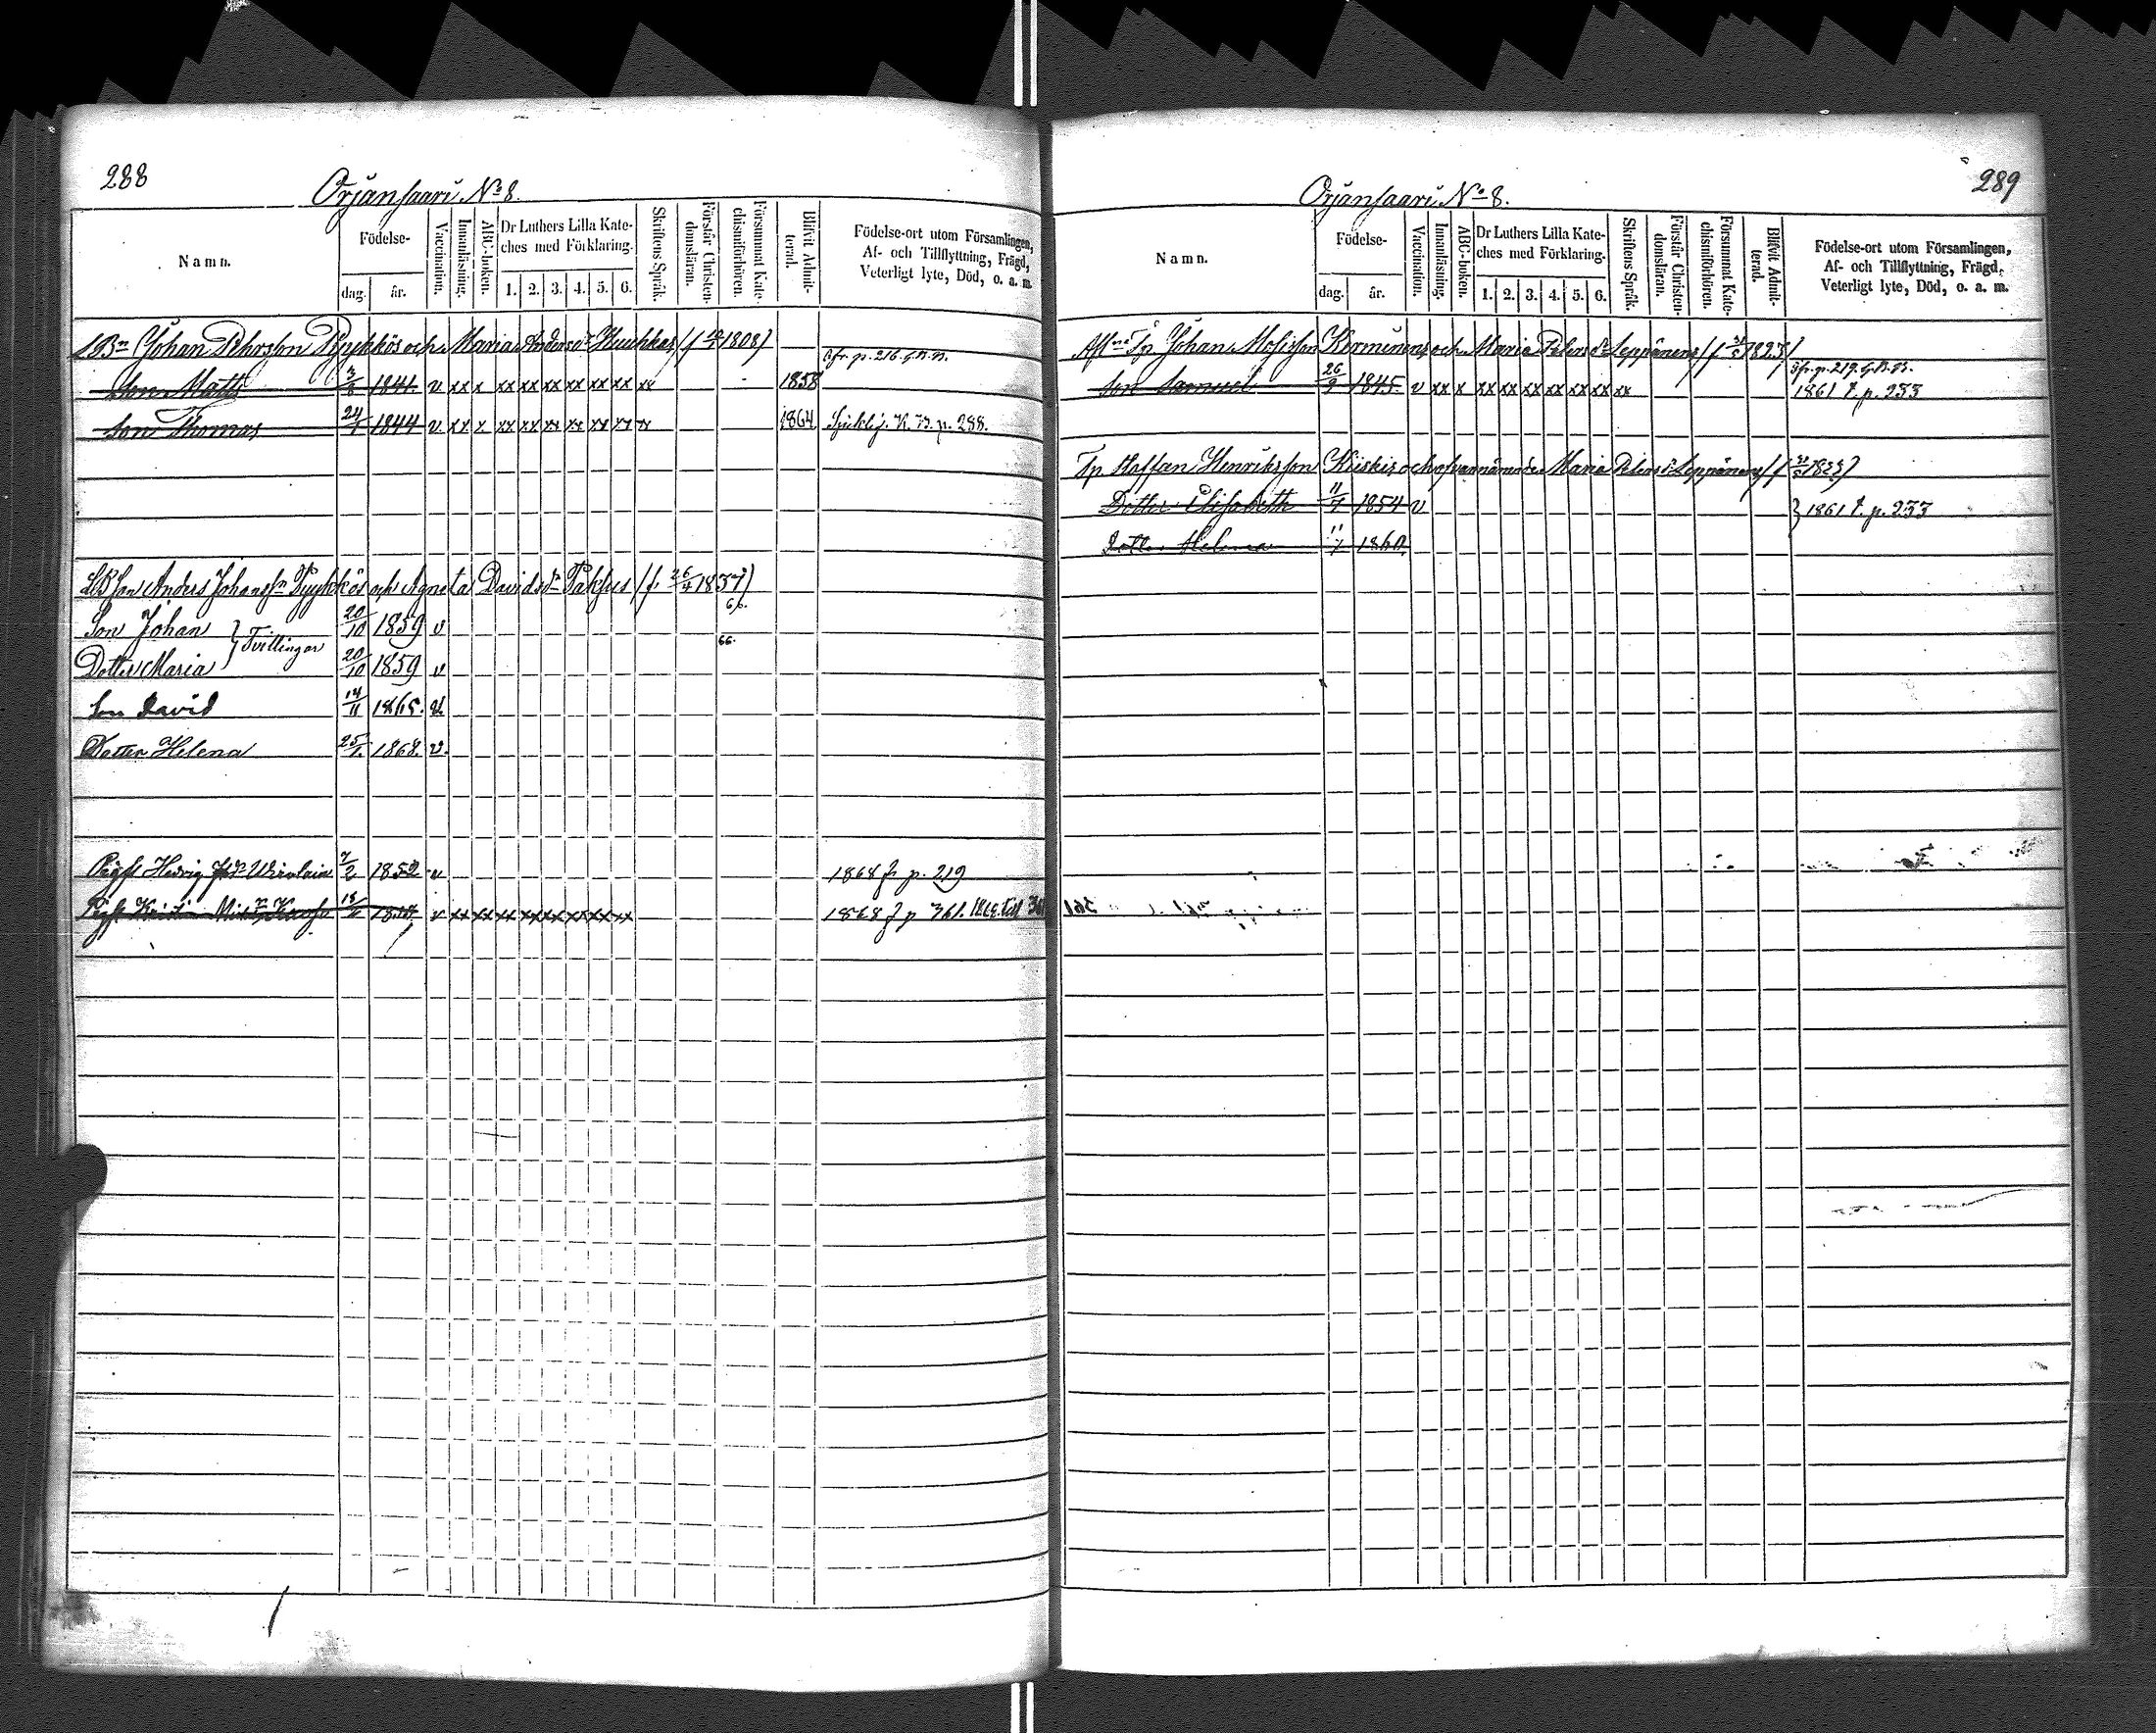 288
Orjansaari No 8.
Namn.
Födelse-
dag.
år.
Vaccination.
Innanläsning.
ABC-boken.
Dr Luthers Lilla Kate-
ches med Förklaring.
1. 2. 3. 4. 5. 6.
Skriftens Språk.
Förstår Christen-
domsläran.
Försummat Kate-
chismiförhören.
Blifvit Admit-
terad.
Födelse-ort utom Församlingen,
Af- och Tillflyttning, Frägd,
Veterligt lyte, Död, o. a. m.
Johan Pehrsson Pyykkös och Maria Anders dr 1808)
fr. p. 216 G.K.B.
Son Matts 1841. v xx x xx xx xx xx xx xx xx 1858
Son Thomas 24/1 1844 v xx x xx xx xx xx xx xx xx 1864 K. B. p. 288.
Son Anders Johanss:n Pyykkös och Agneta Davids dr Paksus (f. 26/4 1837)
66.
Son Johan } Tvillingar 20/10 1859 v
66.
Dotter Maria 20/10 1859 v
Son David 14/11 1865. v
Dotter Helena 25/1. 1868. v.
Hedvig 7/2 1852 v 1868 fr p. 219
v xx xx xx xx xx xx xx xx 1868 f p 361.
289
Orjansaari No 8.
Namn.
Födelse-
dag.
år.
Vaccination.
Innanläsning.
ABC-boken.
Dr Luthers Lilla Kate-
ches med Förklaring.
1. 2. 3. 4. 5. 6.
Skriftens Språk.
Förstår Christen-
domsläran.
Försummat Kate-
chismiförhören.
Blifvit Admit-
terad.
Födelse-ort utom Församlingen,
Af- och Tillflyttning, Frägd,
Veterligt lyte, Död, o. a. m.
Afl:ne Tp. Johan Mosisson Kerminens och Maria Peters dr Leppänens 1823)
fr. p. 219. G.K.B.
Son Samuel 26/9 1845. v xx x xx xx xx xx xx xx xx 1861 t. p. 233
Tp. Staffan Henriksson Kiiskis och ofvannämnde Maria Peters dr Leppänens 1823)
Dotter Elisabeth 1854 v } 1861 t. p. 233
Dotter Helena 1860.